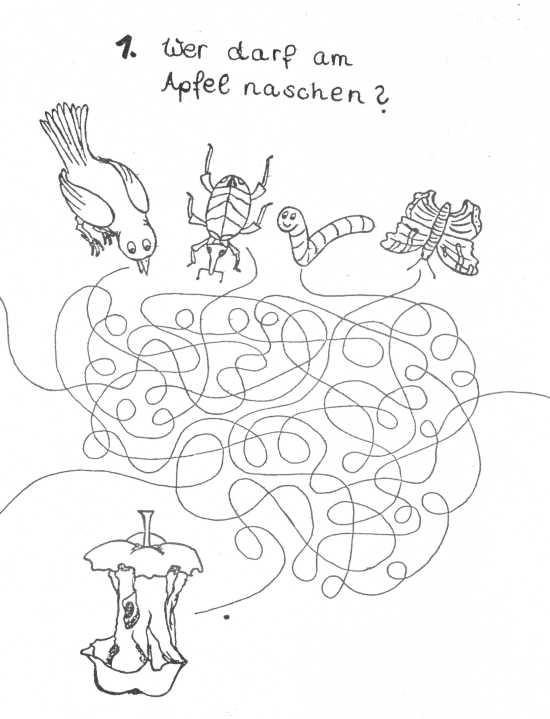 1. Wer darf am
Apfel naschen?